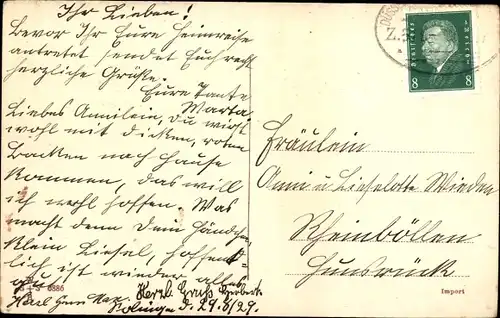 Ihr Lieben!
Bevor Ihr Eure Heimreise
antretet sendet Euch recht
herzliche Grüße.
Eure Tante
Marta.
Liebes Annilein, Du wirst
wohl mit dicken, roten
Backen nach Hause
kommen, das will
ich wohl hoffen. Was
macht denn Dein Händchen,
klein Liesel, hoffent-
lich ist wieder alles
gut
Herzl. Gruß Herbert
Solingen d. 29.8/29.
6886
DEUTSCHES REICH
8 8
Fräulein
Anni u Lieselotte Wieden
Rheinböllen
Hunsrück
Import